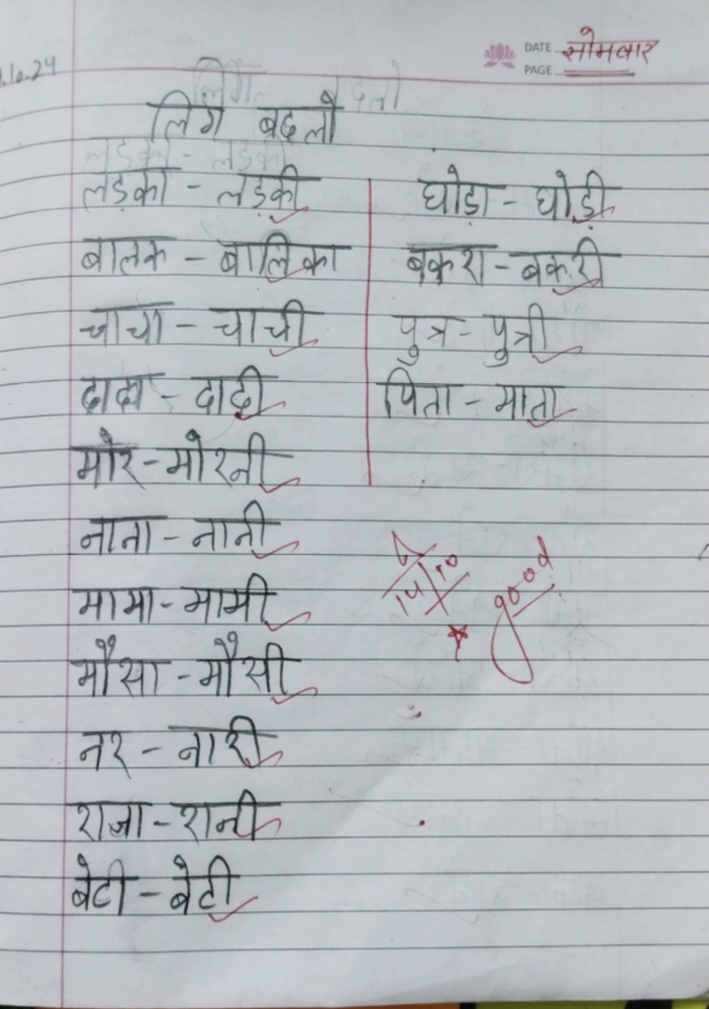 .10.24
DATE सोमवार
PAGE
लिंग बदलो
लड़का - लड़की
बालक - बालिका
चाचा - चाची
दादा - दादी
मोर - मोरनी
नाना - नानी
मामा - मामी
मौसा - मौसी
नर - नारी
राजा - रानी
बेटी - बेटी
घोड़ा - घोड़ी
बकरा - बकरी
पुत्र - पुत्री
पिता - माता
good